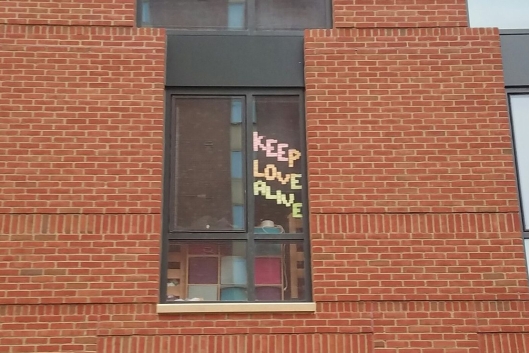 KEEP
LOVE
ALIVE